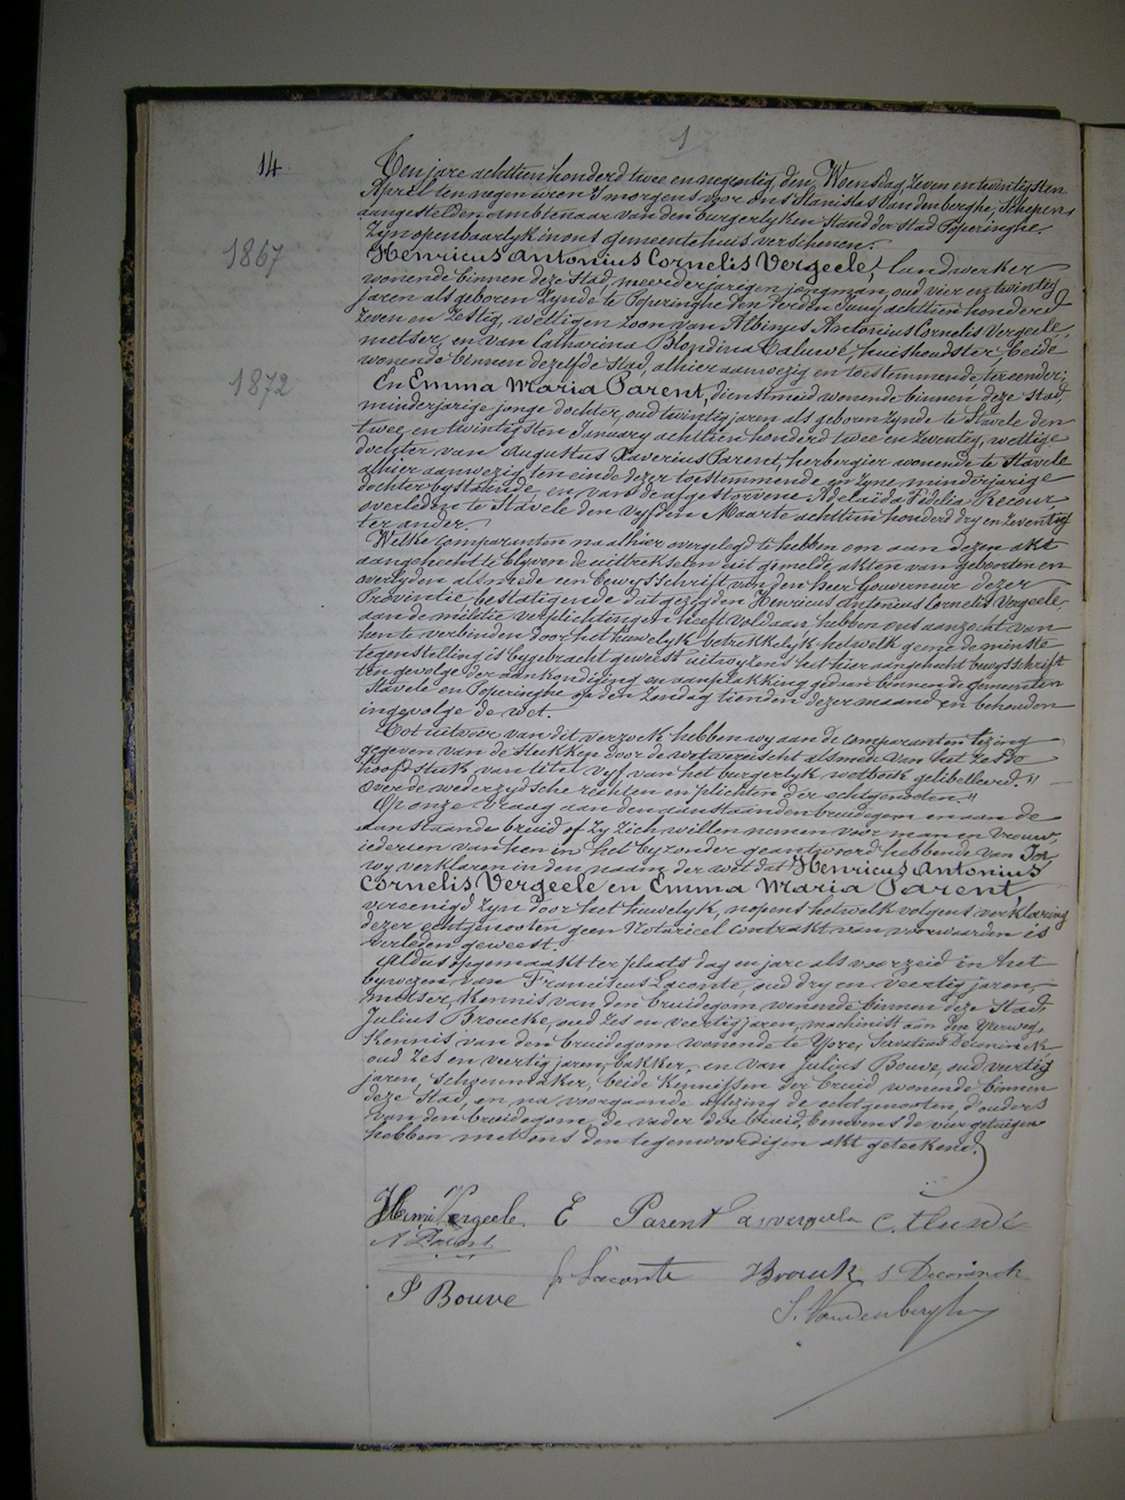 1
14
Ten jare achttien honderd twee en negentig, den Woensdag, zeven en twintigsten
April ten negen uren 's morgens voor ons Stanislas Vandenberghe, Schepen,
aangestelden ambtenaar van den burgerlyken Stand der Stad Poperinghe.
Zyn openbaarlyk in ons gemeentehuis verschenen:
1867
Henricus Antonius Cornelis Vergeele, landwerker
wonende binnen deze Stad, meerderjarigen jongman, oud vier en twintig
jaren als geboren zynde te Poperinghe den derden Juny achttien honderd
zeven en zestig, wettigen zoon van Albinus Antonius Cornelis Vergeele,
metser, en van Catharina Blondina Caluwé, huishoudster, beide
wonende binnen dezelfde Stad, alhier aanwezig en toestemmende, ter eender;
1872
En Emma Maria Parent, dienstmeid wonende binnen deze Stad,
minderjarige jonge dochter, oud twintig jaren als geboren zynde te Stavele den
twee en twintigsten January achttien honderd twee en zeventig, wettige
dochter van Augustus Xaverius Parent, herbergier wonende te Stavele
alhier aanwezig ten einde dezer toestemmende en zyne minderjarige
dochter bystaande, en van de afgestorvene Adelaïda Fidelia Recour
overleden te Stavele den vyfden Maarte achttien honderd dry en zeventig
ter ander.
Welke comparanten na alhier overgelegd te hebben om aan dezen akt
aangehecht te blyven de uittrekselen uit gemelde akten van geboorten en
overlyden alsmede een bewysschrift van den heer Gouverneur dezer
Provintie bestatigende dat gezegden Henricus Antonius Cornelis Vergeele,
aan de militie verplichtingen heeft voldaan hebben ons aanzocht van
hen te verbinden door het huwelyk betrekkelyk hetwelk geene de minste
tegenstelling is bygebracht geweest uitwyzens het hier aangehecht bewysschrift
ten gevolge der aankondiging en aanplakking gedaan binnen de gemeenten
Stavele en Poperinghe op den Zondag tienden dezer maand en behouden
ingevolge de wet.
Tot uitvoer van dit verzoek hebben wy aan de comparanten lezing
gegeven van de stukken door de wet vereischt alsmede van het zesde
hoofdstuk van titel vyf van het burgerlyk wetboek gelibelleerd."
Over de wederzydsche rechten en plichten der echtgenooten."
Op onze vraag aan den aanstaanden bruidegom en aan de
aanstaande bruid of zy zich willen nemen voor man en vrouw,
iedereen van hen in het byzonder geantwoord hebbende van Ja,
wy verklaren in den naam der wet dat Henricus Antonius
Cornelis Vergeele en Emma Maria Parent
vereenigd zyn door het huwelyk, nopens hetwelk volgens verklaring
dezer echtgenooten geen Notarieel contrakt van voorwaarden is
verleden geweest.
Aldus opgemaakt ter plaats dag en jare als voorzeid in het
bywezen van Franciscus Laconte, oud dry en veertig jaren,
metser, kennis van den bruidegom wonende binnen deze Stad,
Julius Broucke, oud zes en veertig jaren, machinist aan den Yzerweg,
kennis van den bruidegom wonende te Yper, Servatius Deconinck
oud zes en veertig jaren, bakker, en van Julius Bouve, oud veertig
jaren, schoenmaker, beide kennissen der bruid wonende binnen
deze Stad, en na voorgaande aflezing de echtgenooten, d'ouders
van den bruidegom, de vader der bruid, benevens de vier getuigen
hebben met ons den tegenwoordigen akt geteekend.
Henri Vergeele E Parent a vergeele
A Parent
fr Laconte J Brouck S Deconinck
J Bouve
S. Vandenberghe